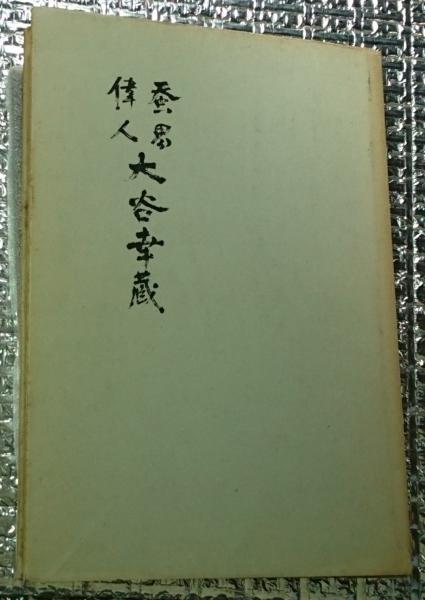 蚕界
偉人
大谷幸蔵